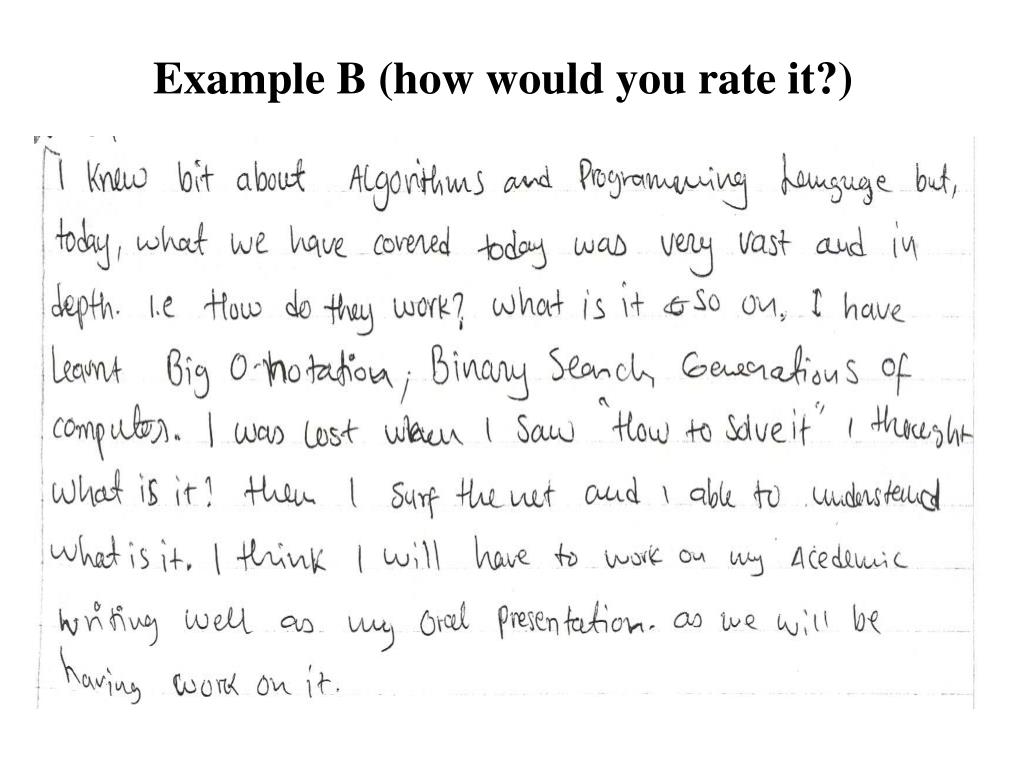 Example B (how would you rate it?)
I knew bit about Algorithms and Programming Language but,
today, what we have covered today was very vast and in
depth. I.e How do they work? What is it & so on, I have
learnt Big O-notation, Binary Search, Generations of
computer. I was lost when I saw "How to solve it" I thought
what is it? then I surf the net and I able to understand
what is it. I think I will have to work on my Acedemic
writing well as my oral presentation. as we will be
having work on it.